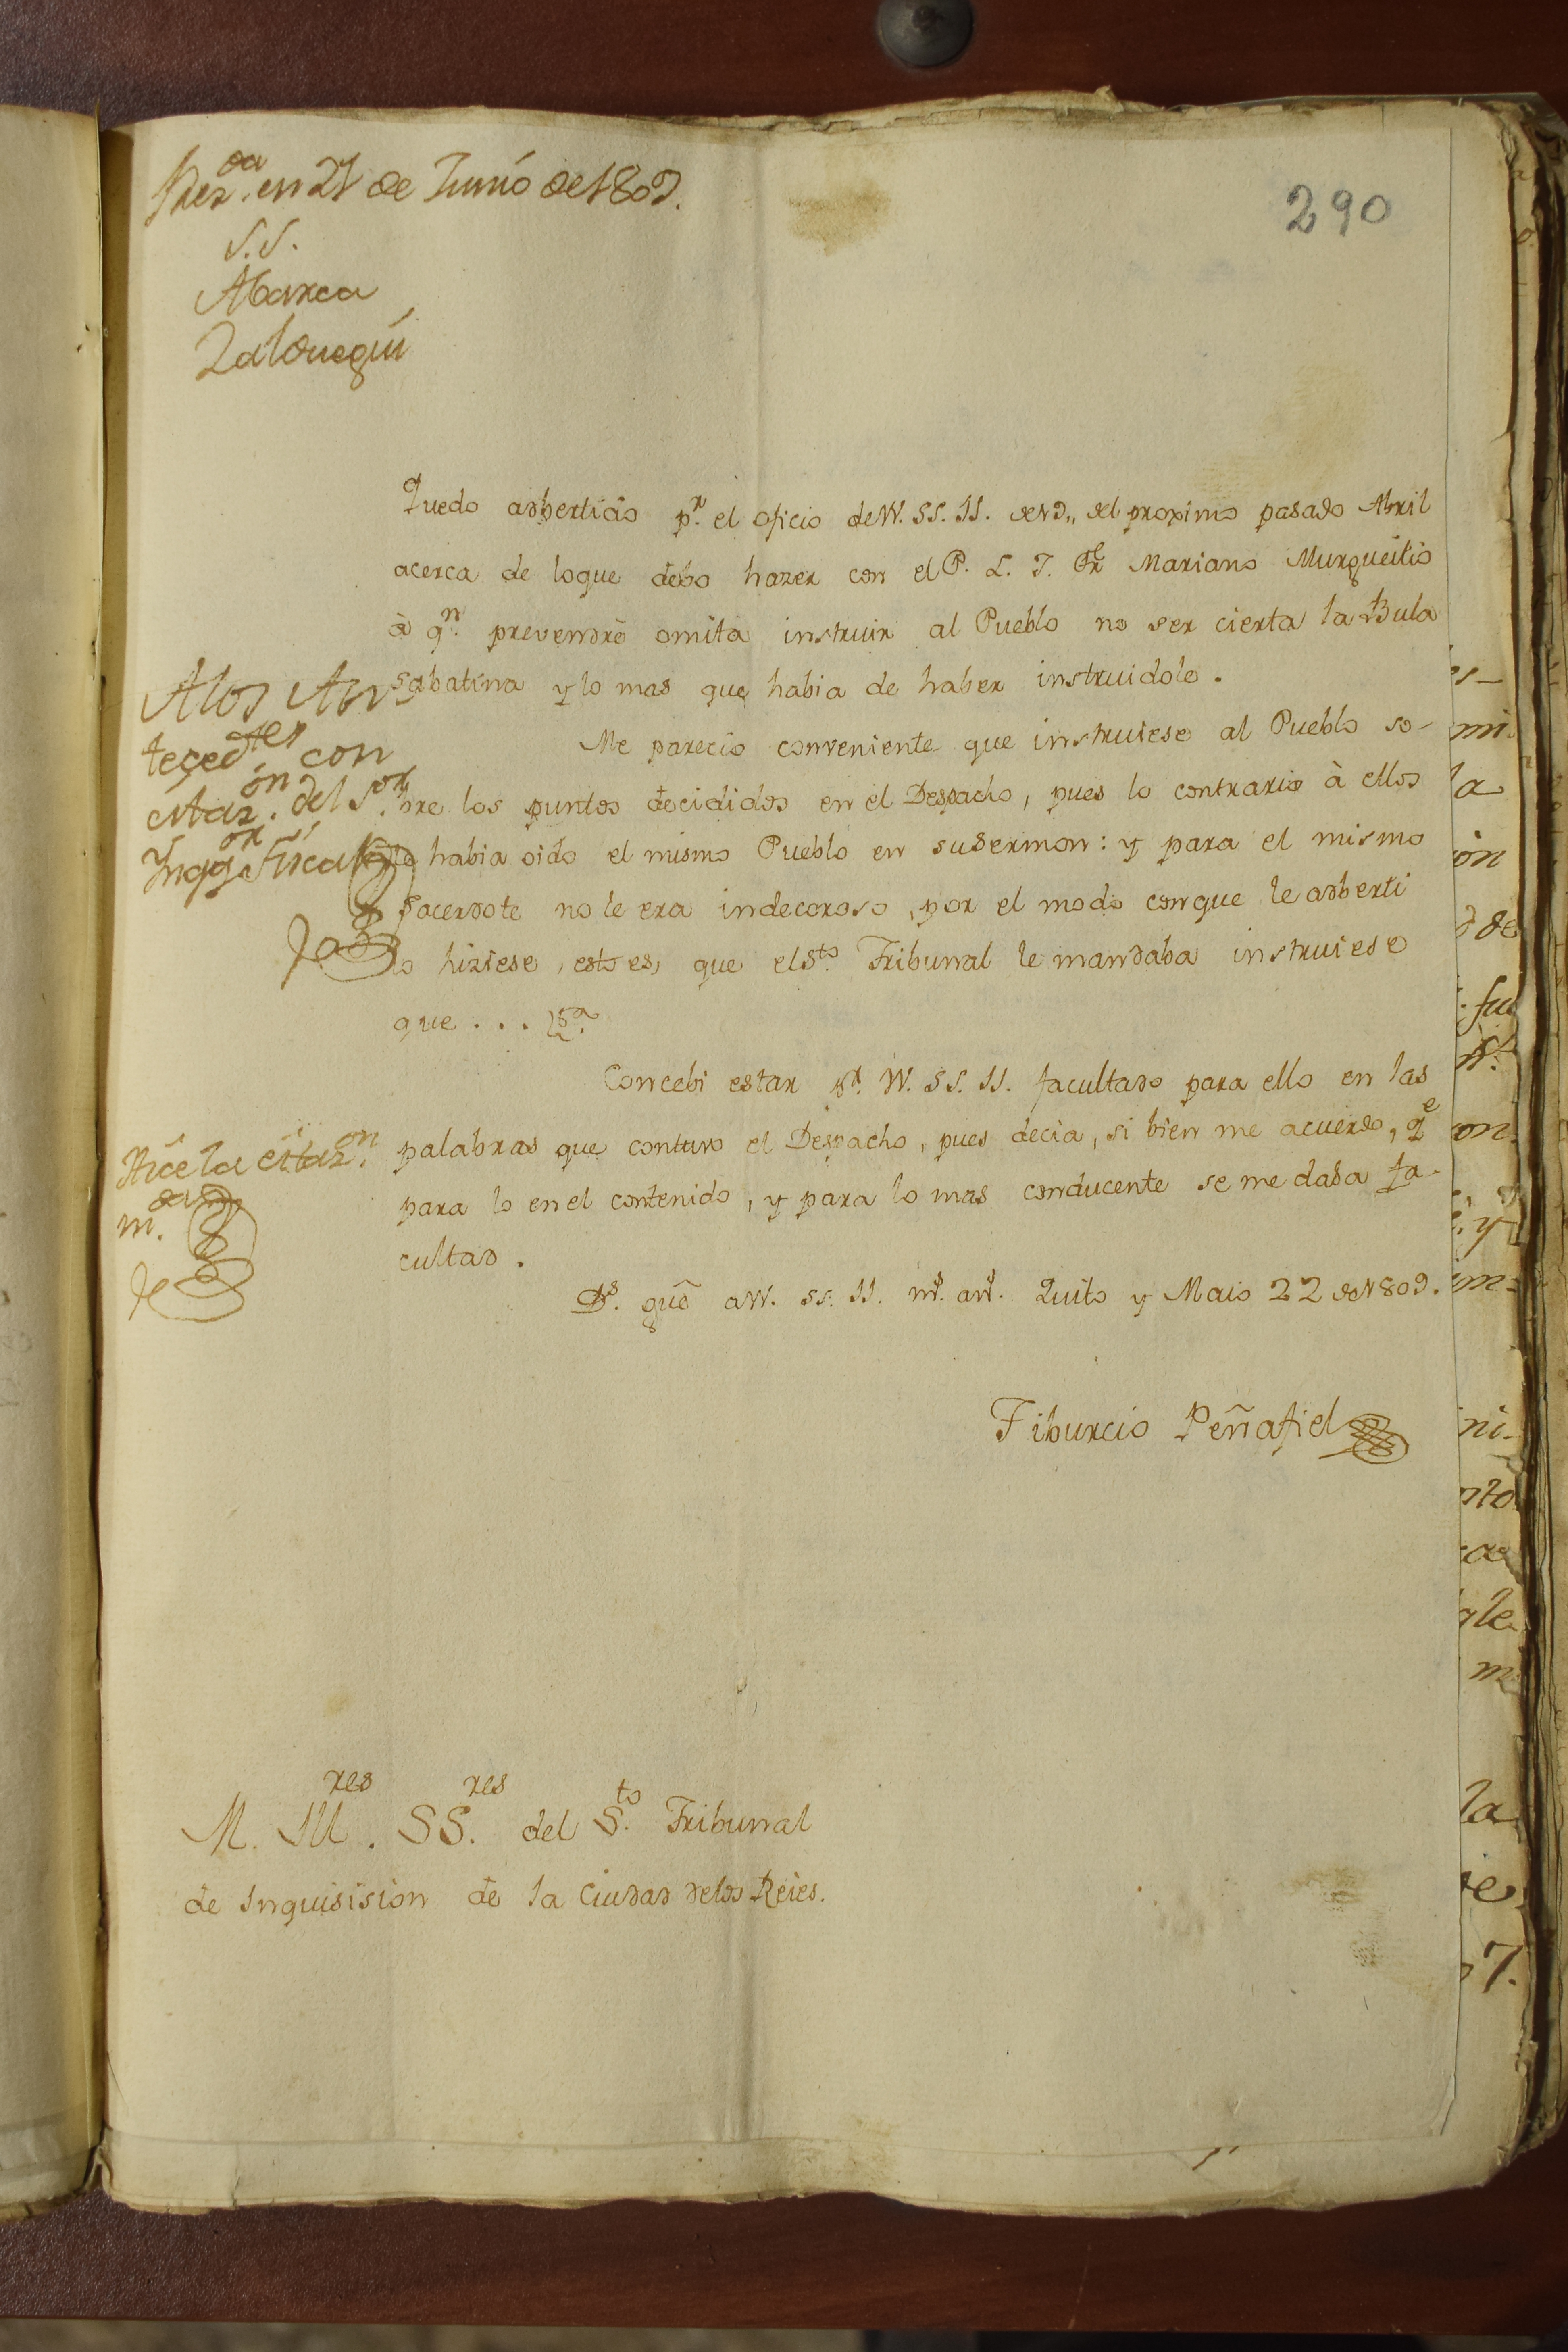 Prez.da en 27 de Junio de 1809.
S.S.
Abarca
Zalduegui
290
Quedo adbertido p.r el oficio de VV. SS. II. del proximo pasado Abril
acerca de loque debo hazer con el P. L. J. Fr Mariano Murgueitio
à q.n prevendrè omita instruir al Pueblo no ser cierta la Bula
sabatina y lo mas que habia de haber instruidole.
Me parecio conveniente que instruiese al Pueblo so-
bre los puntos decididos en el Despacho, pues lo contrario à ellos
habia oido el mismo Pueblo en su sermon: y para el mismo
Sacerdote no le era indecoroso, por el modo conque le adberti
lo hiziese, esto es, que el S.to Tribunal le mandaba instruiese
que . . .
Concebi estar p.r VV. SS. II. facultado para ello en las
palabras que contuvo el Despacho, pues decia, si bien me acuerdo, q.e
para lo en el contenido, y para lo mas conducente se me daba fa-
cultad.
D.s gũe a VV. SS. II. m.s an.s Quito y Maio 22 de 1809.
Tiburcio Peñafiel
Alos An-
teced.tes con
citaz.ón del S.or
Ynq.or Fiscal
Hice la citaz.on
M. Ill.res SS.res del S.to Tribunal
de Inquisision de la Ciudad delos Reies.